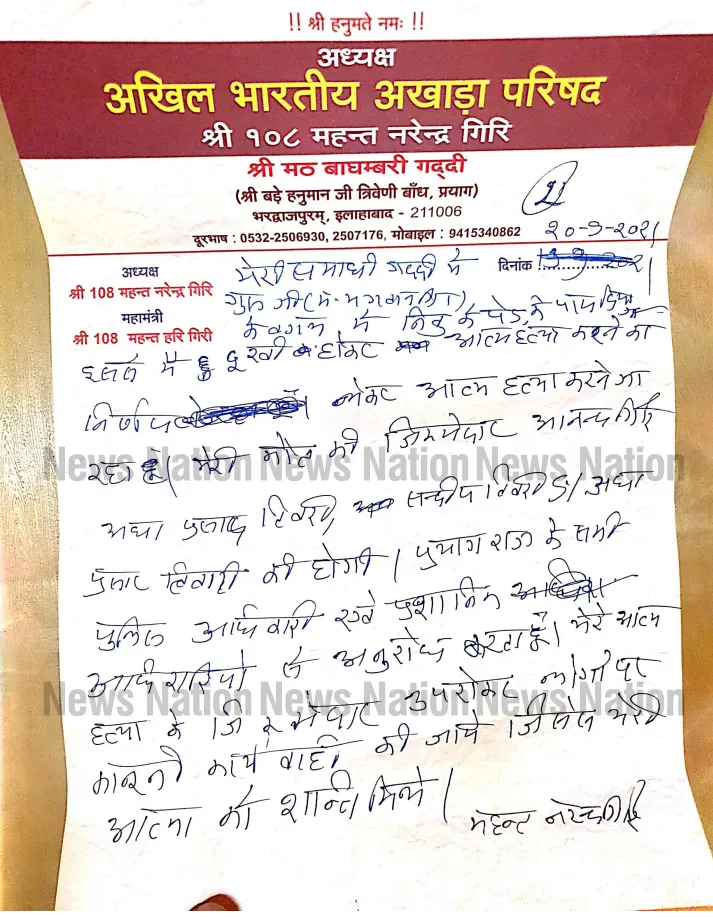 !! श्री हनुमते नमः !!
अध्यक्ष
अखिल भारतीय अखाड़ा परिषद
श्री १०८ महन्त नरेन्द्र गिरि
श्री मठ बाघम्बरी गद्दी
(श्री बड़े हनुमान जी त्रिवेणी बाँध, प्रयाग)
भरद्वाजपुरम्, इलाहाबाद - 211006
दूरभाष : 0532-2506930, 2507176, मोबाइल : 9415340862
अध्यक्ष
श्री 108 महन्त नरेन्द्र गिरि
महामंत्री
श्री 108 महन्त हरि गिरी
दिनांक
मेरी समाधी गद्दी में
गुरु जी
के बगल में के पेड़ के पास
मैं दुखी होकर आत्म हत्या करने का
निर्णय लेकर आत्म हत्या करने जा
रहा हूँ। मेरी मौत की जिम्मेदार आनन्द गिरि
प्रसाद तिवारी
तिवारी की होगी। प्रयागराज के सभी
पुलिस एवं
से अनुरोध करता हूँ। मेरे आत्म
हत्या के उपरोक्त लोगों पर
कानूनी कार्यवाही की जाये जिससे मेरी
आत्मा को शान्ति मिले।
महन्त नरेन्द्र गिरि
News Nation News Nation News Nation
News Nation News Nation News Nation